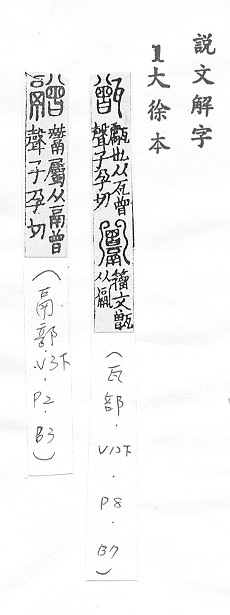 説文解字
1大徐本
甑 甗也从瓦曾
聲子孕切
籒文甑
从䰜
(瓦部．V12下．P8．B7)
鬵屬从鬲曾
聲子孕切
(鬲部．V3下．P2．B3)